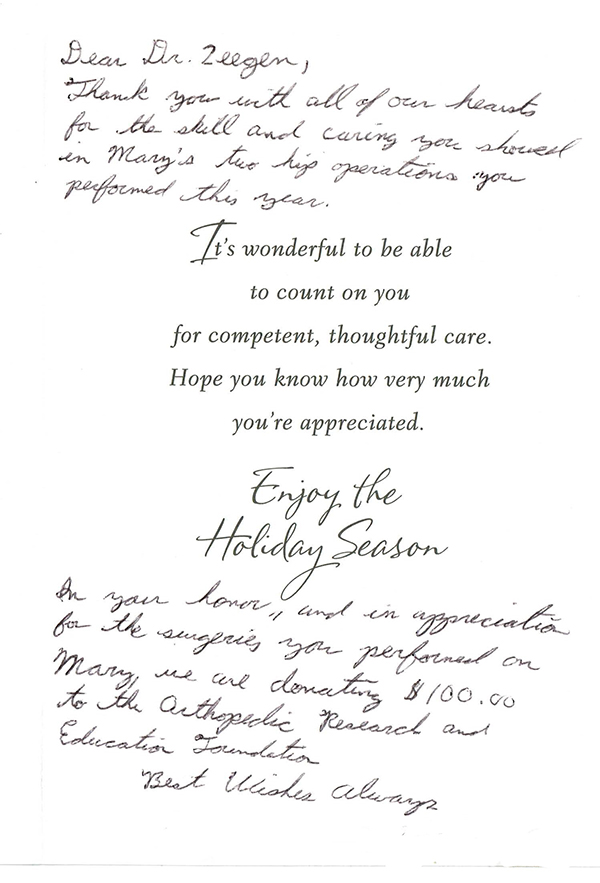 Dear Dr. Zeegen,
Thank you with all of our hearsts
for the skill and caring you showed
in Mary's two hip operations you
performed this year.
It's wonderful to be able
to count on you
for competent, thoughtful care.
Hope you know how very much
you're appreciated.
Enjoy the
Holiday Season
In your honor, and in appreciation
for the surgeries you performed on
Mary, we are donating $100.00
to the Orthopedic Research and
Education Foundation
Best Wishes Always